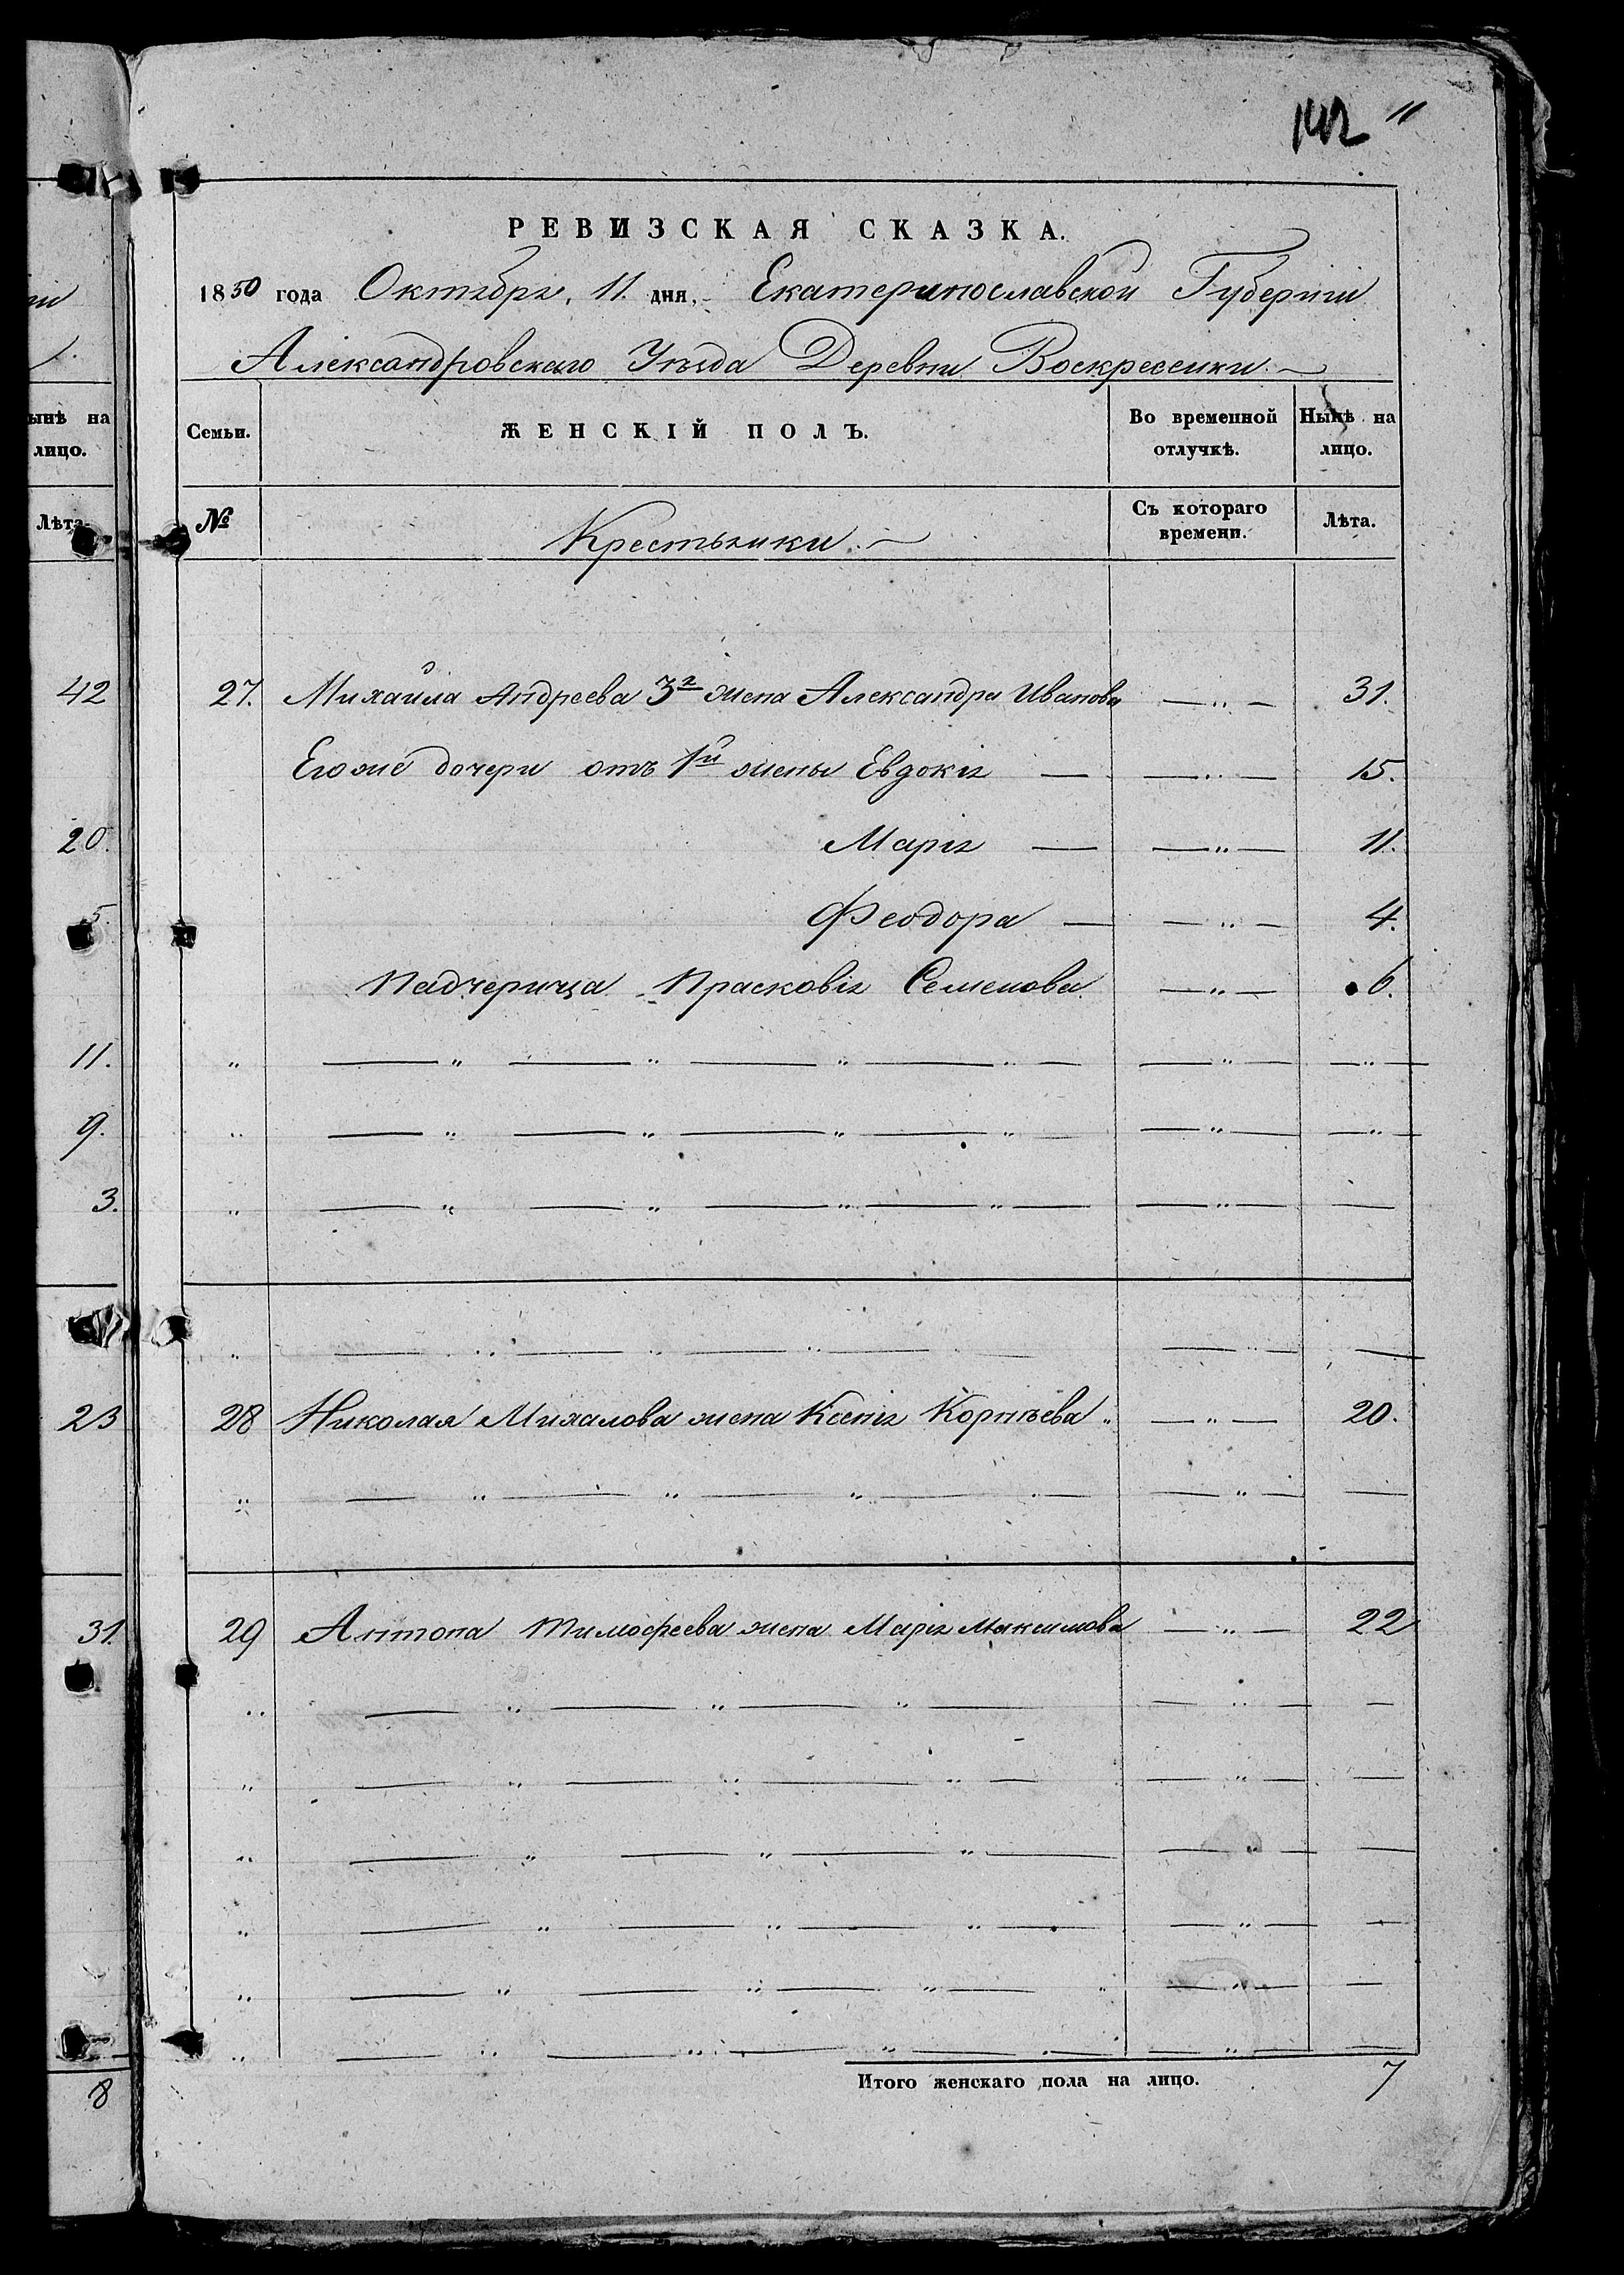 142 11
РЕВИЗСКАЯ СКАЗКА.
1850 года Октября, 11. дня, Екатеринославской Губерніи
Александровскаго Уѣзда Деревни Воскресенки.
ынѣ на
лицо.
Лѣта.
Семьи. ЖЕНСКІЙ ПОЛЪ. Во временной отлучкѣ. Нынѣ на лицо.
№ Крестьянки. Съ котораго времени. Лѣта.
42 27. Михайла Андреева 3я жена Александра Иванова — „ — 31.
Его же дочери отъ 1й жены Евдокія — — „ — 15.
20. Марія — — „ — 11.
5. Феодора — — „ — 4.
Падчерица Прасковія Семенова — „ — 6.
11.
9.
3.
23 28 Николая Михалова жена Ксенія Корнѣева „ — „ — 20.
31. 29 Антона Тимофеева жена Марія Максимова — „ — 22
8 Итого женскаго пола на лицо. 7